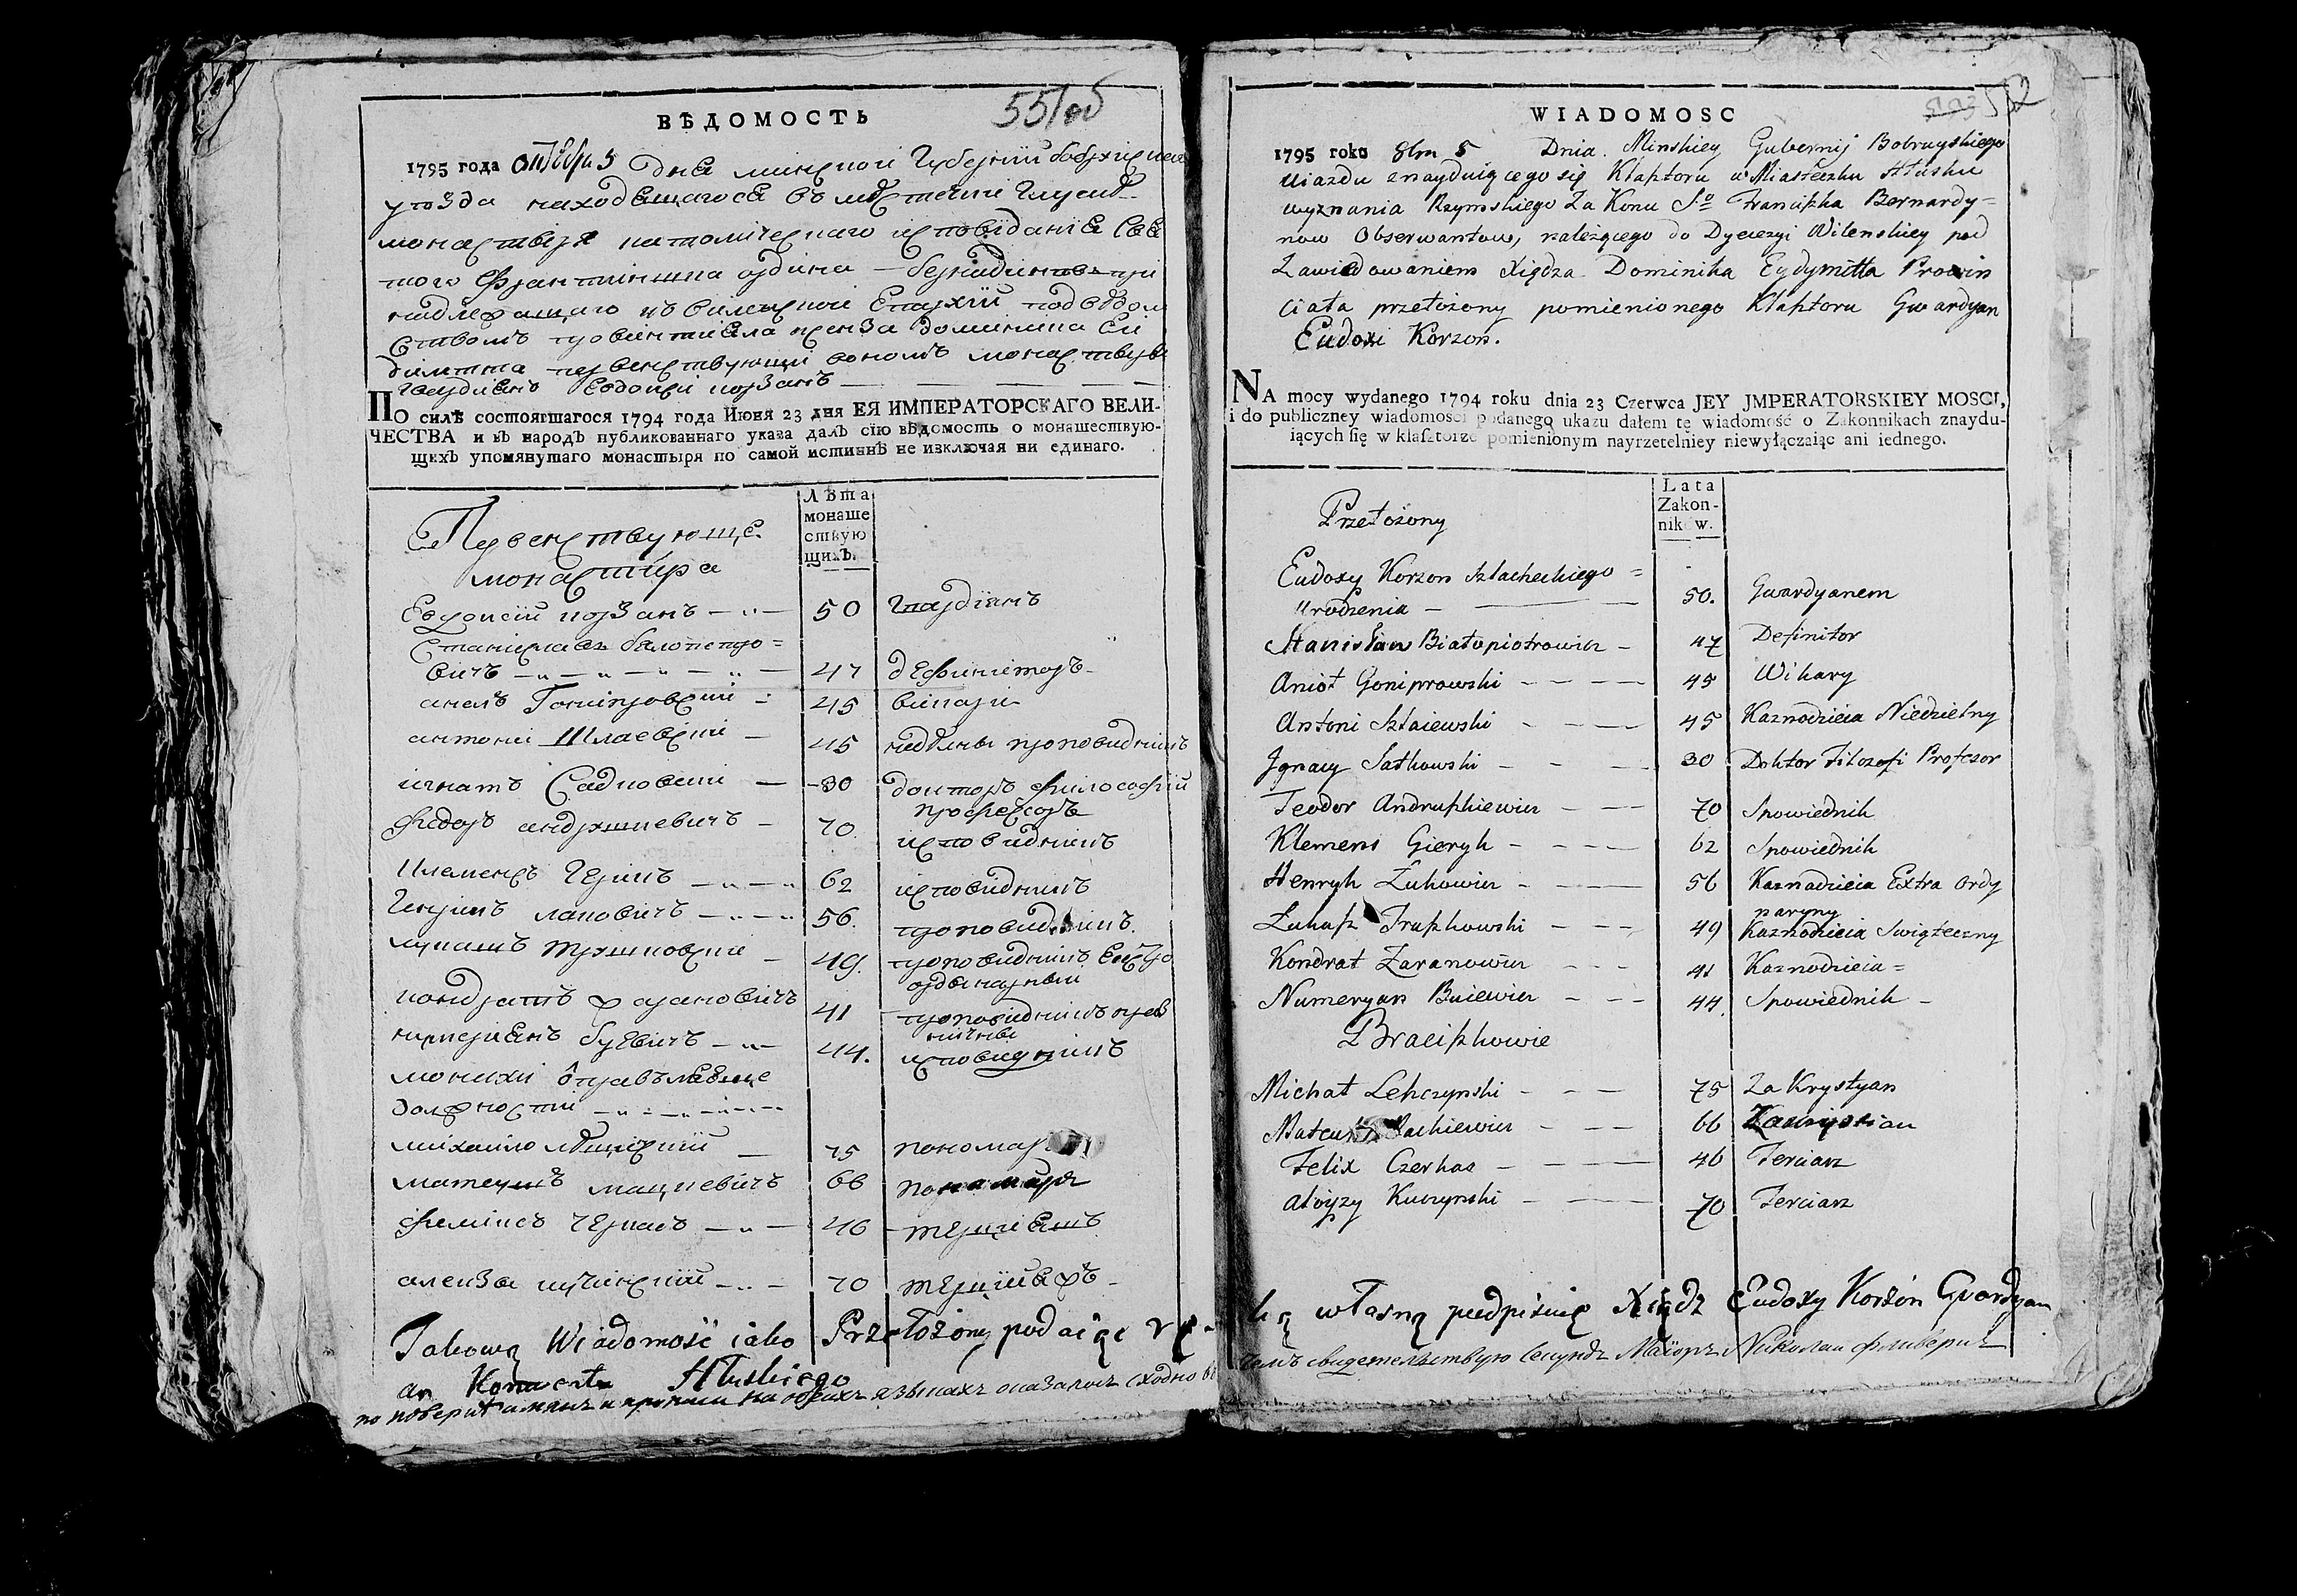 551об
ВѢДОМОСТЬ
1795 года октебри 5 днѣ минской губернїи бобруйскаго
уезда находещагосе въ местечкѣ глуске
монастыря католическаго исповѣданія све
того францишка ордина бернадинов при
надлежащаго къ виленской епархїи под ведом
ством провинциела ксенза доминика еи
димтта первенствующи
гвардиенъ Евдокси корзанъ
ПО силѣ состоявшагося 1794 года Июня 23 дня ЕЯ ИМПЕРАТОРСКАГО ВЕЛИ-
ЧЕСТВА и въ народъ публикованнаго указа далъ сїю вѣдомость о монашествую-
щихъ упомянутаго монастыря по самой истиннѣ не изключая ни единаго.
Первенствующе
монастира
Лѣта
монаше
ствую
щихъ.
Евдоксїи корзанъ 50 гвардіянъ
Станислав белопетро=
вичъ 47 дефинiторъ
анелъ Гонипровски 45 викари
антони Шлаевски 45 неделны проповидникъ
игнатъ Садковски 30 докторъ философїи
професоръ
федоръ андрушкевичъ 70 исповидникъ
клеменсъ герикъ 62 исповидникъ
генрикъ лаковичъ 56. проповидникъ.
лукашъ трушковски 49. проповидникъ екстра
ординарный
кондратъ жарановичъ 41 проповидникъ
нумериенъ буевичъ 44. исповидникъ
монахи
должности
михаило 75 пономар
матеушъ мацкевичъ 66 пономаря
феликсъ черкасъ 46 терциешъ
алензы кучинскїи 70
Takową Wiadomość iako Przełożony podaiąc rę-
an Konwentu Hłuskiego
WIADOMOSC
552
1795 roku 8bra 5 Dnia. Minskiey Gubernij Bobruyskiego
Uiazdu znayduiącego się Klasztoru w Miasteczku Hłusku
wyznania Rzymskiego Za Konu So Franciszka Bernardy=
now Obserwantow, należącego do Dyecezyi Wilenskiey pod
Zawiedowaniem Xiędza Dominika Egdymitta Prowin
ciała przełożony pomienionego Klasztoru Gwardyan
Eudoxi Korzon.
NA mocy wydanego 1794 roku dnia 23 Czerwca JEY JMPERATORSKIEY MOSCI,
i do publiczney wiadomosci podanego ukazu dałem tę wiadomość o Zakonnikach znaydu-
iących się w klasztorze pomienionym nayrzetelniey niewyłączaiąc ani iednego.
Przełożony
Lata
Zakon-
ników.
Eudoxy Korzon Szlacheckiego =
Urodzenia 50. Gwardyanem
Stanisław Białopiotrowicz 47 Definitor
Anioł Goniprowski 45 Wikary
Antoni Szłaiewski 45 Kaznodzieia Niedzielny
Jgnacy Satkowski 30 Doktor Filozofi Profesor
Teodor Andruszkiewicz 70 Spowiednik
Klemens Gieryk 62 Spowiednik
Henryk Łukowicz 56 Kaznodzieia Extra Ordy
naryny
Łukasz Truszkowski 49 Kaznodzieia Swiąteczny
Kondrat Zaranowicz 41 Kaznodzieia=
Numeryan Buiewicz 44. Spowiednik
Braciszkowie
Michał Lehczynski 75 Za Krystyan
Mateusz Mackiewicz 66 Zakrystian
Felix Czerkas 46 Terciarz
Aloyzy Kuczynski 70 Terciarz
ką własną podpisuię Xiądz Eudoxy Korzon Gvardyan
по поверит а на обеихъ языкахъ оказалось сходно в
чемъ свидетельствую Секундъ Маіоръ Николаи